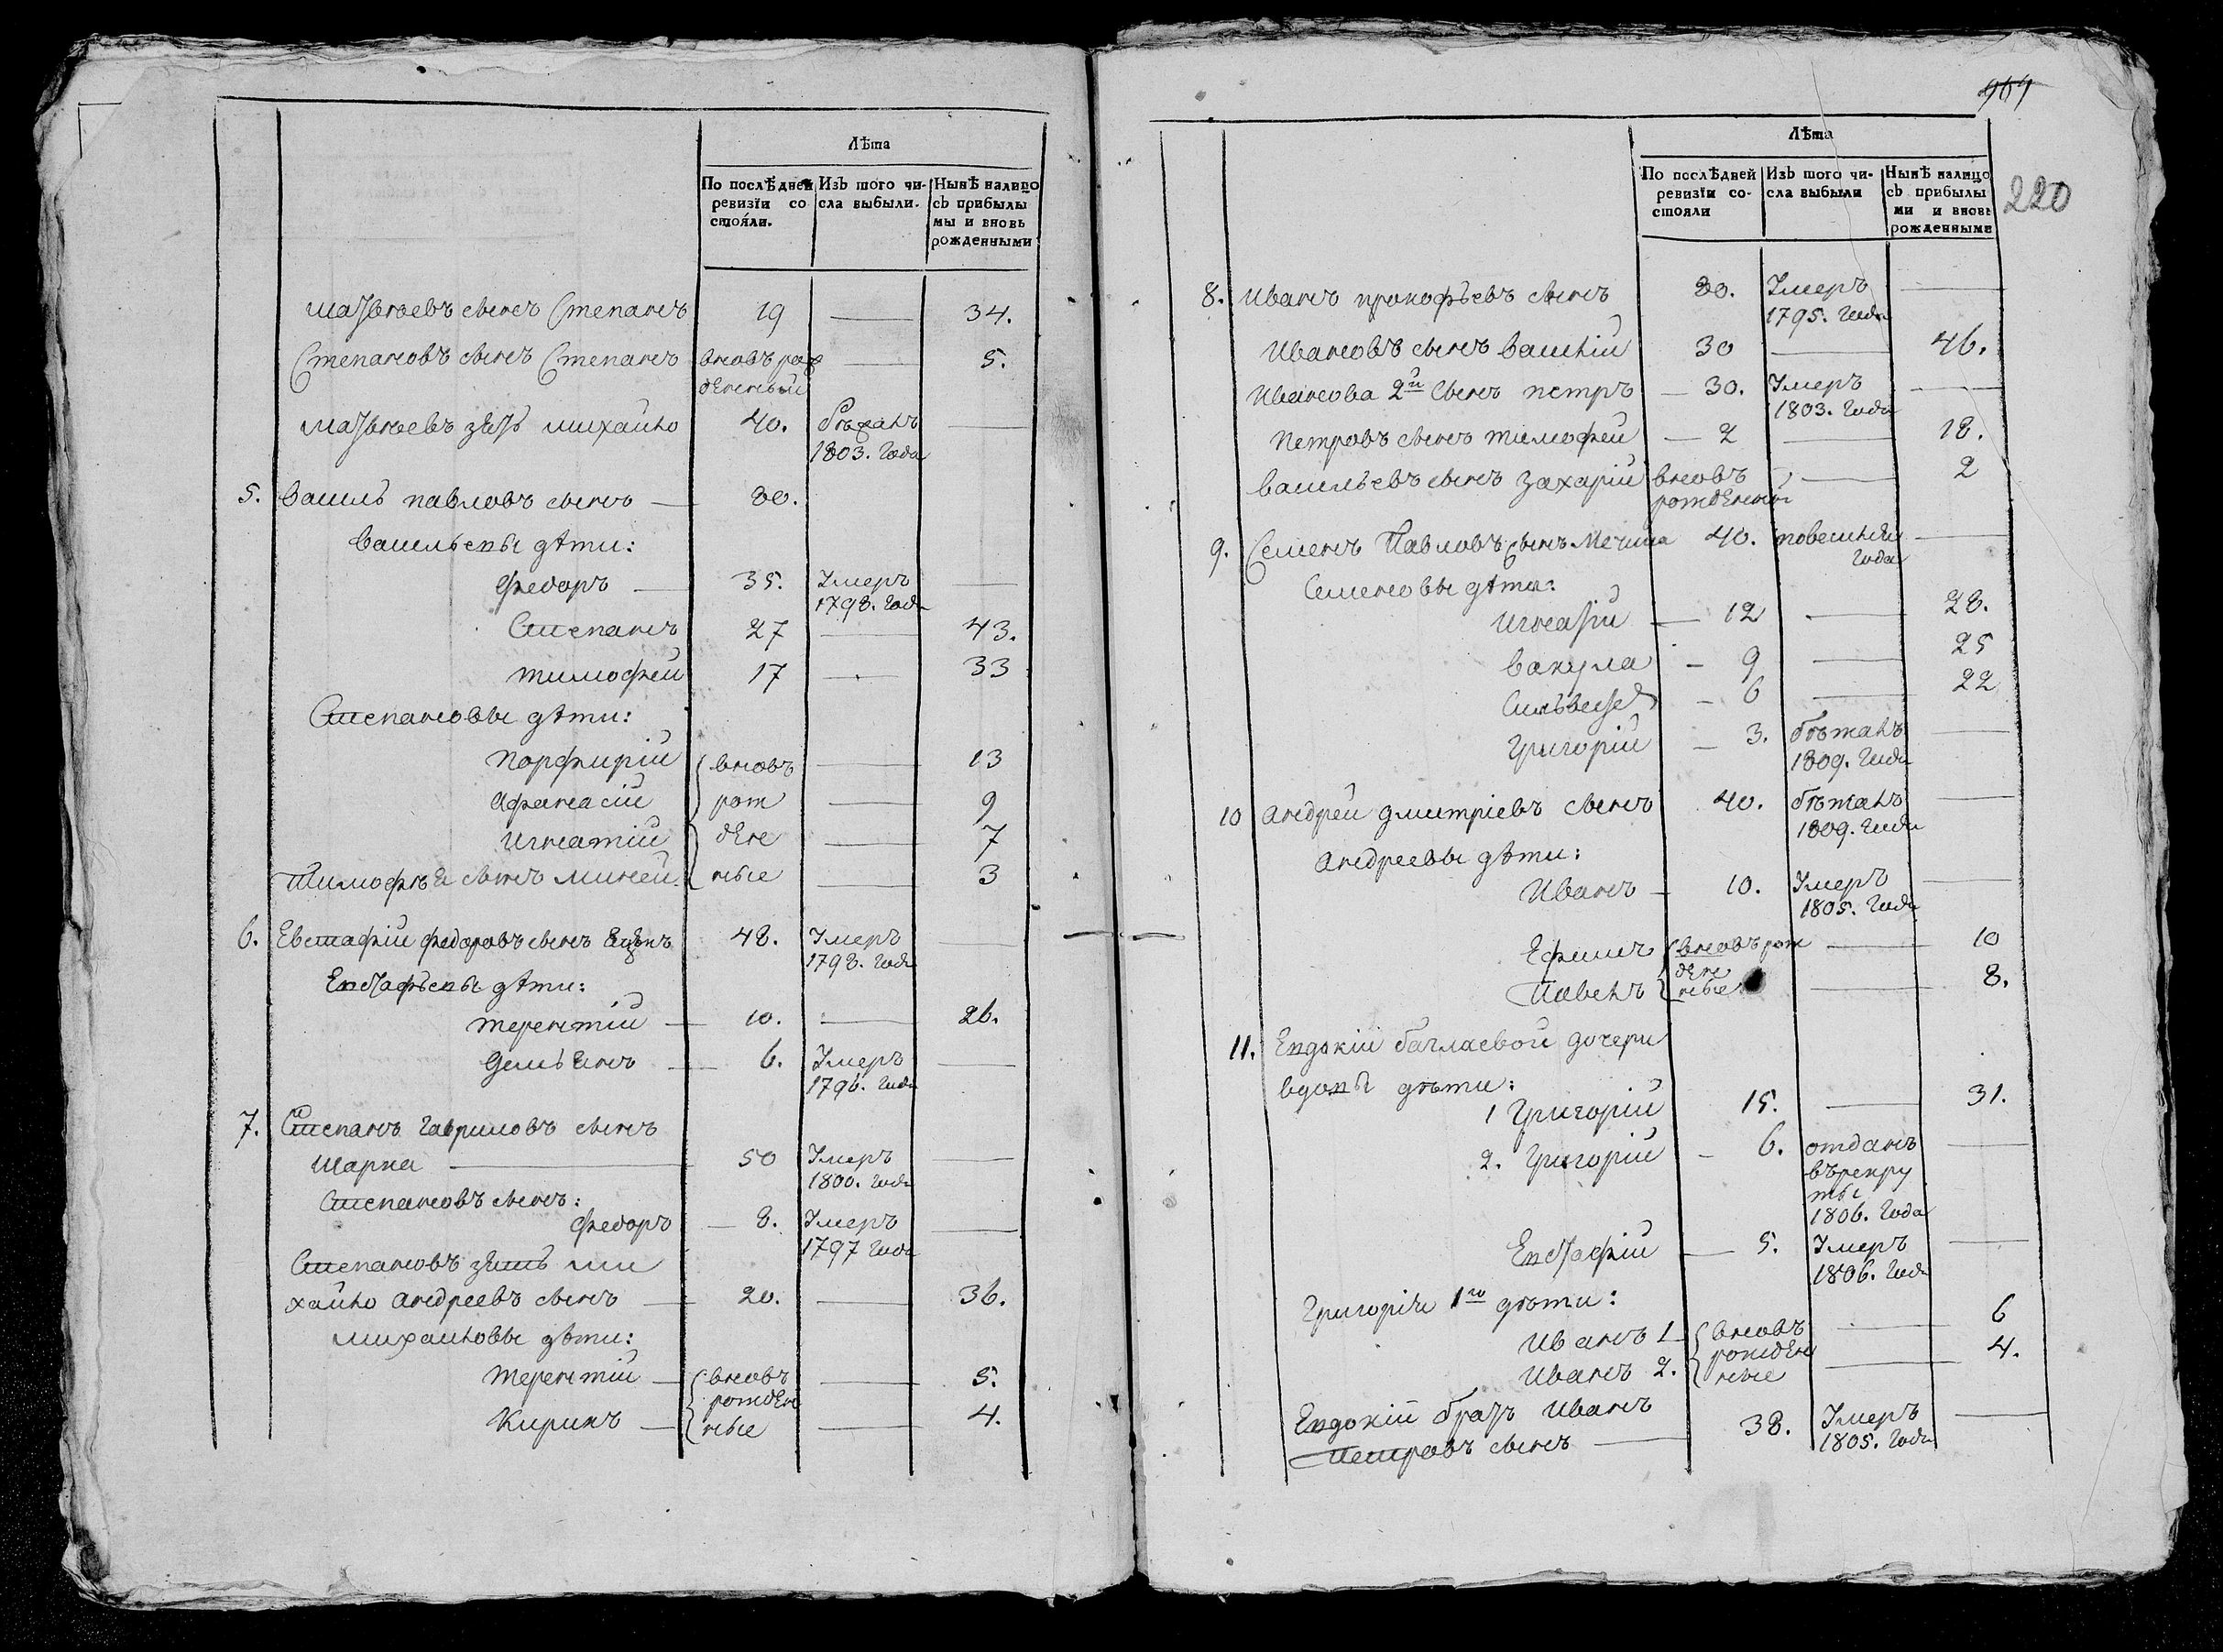 Лѣта
По послѣдней ревизїи со стояли.
Изъ того числа выбыли.
Нынѣ налицо съ прибылы мы и вновь рожденными
Матвѣевъ сынъ Степанъ 19 — 34.
Степановъ сынъ Степанъ вновь рож — 5.
денный
Матвѣевъ зять михайло 40. бѣжалъ —
1803. Года
5. Василь павловъ сынъ — 80.
Васильевы дѣти:
Федоръ — 35. Умеръ —
1798. Года
Степанъ 27 — 43.
тимофей 17 — 33
Степановы дѣти:
Порфирій вновь — 13
Афанасій рож — 9
Игнатій ден — 7
Тимофѣя сынъ Миней ные — 3
6. Евстафій федоровъ сынъ 48. Умеръ —
1798. Года
Евстафьевы дѣти:
терентій — 10. — 26.
Демьянъ — 6. Умеръ —
1796. Года
7. Степанъ гавриловъ сынъ
Шарпа — 50 Умеръ —
1800. Года
Степановъ сынъ:
федоръ — 8. Умеръ —
1797 Года
Степановъ зять ми
хайло Андреевъ сынъ — 20. — 36.
михайловы дѣти:
терентій — вновь — 5.
рожден
Кирилъ — ные — 4.
969
220
Лѣта
По послѣдней ревизїи состояли
Изъ того числа выбыли
Нынѣ налицо съ прибылы ми и вновь рожденными
8. Иванъ прокофьевъ сынъ 80. Умеръ —
1795. Года
Ивановъ сынъ василій 30 — 46.
Иванова 2й сынъ петръ — 30. Умеръ —
1803. Года
Петровъ сынъ тимофей — 2 — 18.
Васильевъ сынъ Захарій вновь — 2
рожденной
9. Семенъ Павловъ сынъ 40. —
года
Семеновы дѣти:
Игнатій — 12 — 28.
Вакула — 9 — 25
Сильвестр — 6 — 22
Григорій — 3. бѣжалъ —
1809. Года
10 Андрей дмитріевъ сынъ 40. бѣжалъ —
1809. Года
Андреевы дѣти:
Иванъ — 10. Умеръ —
1805. Года
Ефимъ вновь рож — 10
ден
Павелъ ные — 8.
11. Евдокіи баглаевой дочери
вдовы дѣти:
1 Григорій 15. — 31.
2. Григорій — 6. отданъ —
въ рекру
ты
1806. Года
Евстафій — 5. Умеръ —
1806. Года
Григорія 1го дѣти:
Иванъ 1 вновь — 6
рожден
Иванъ 2. ные — 4.
Евдокіи братъ Иванъ 38. Умеръ —
Петровъ сынъ — 1805. Года